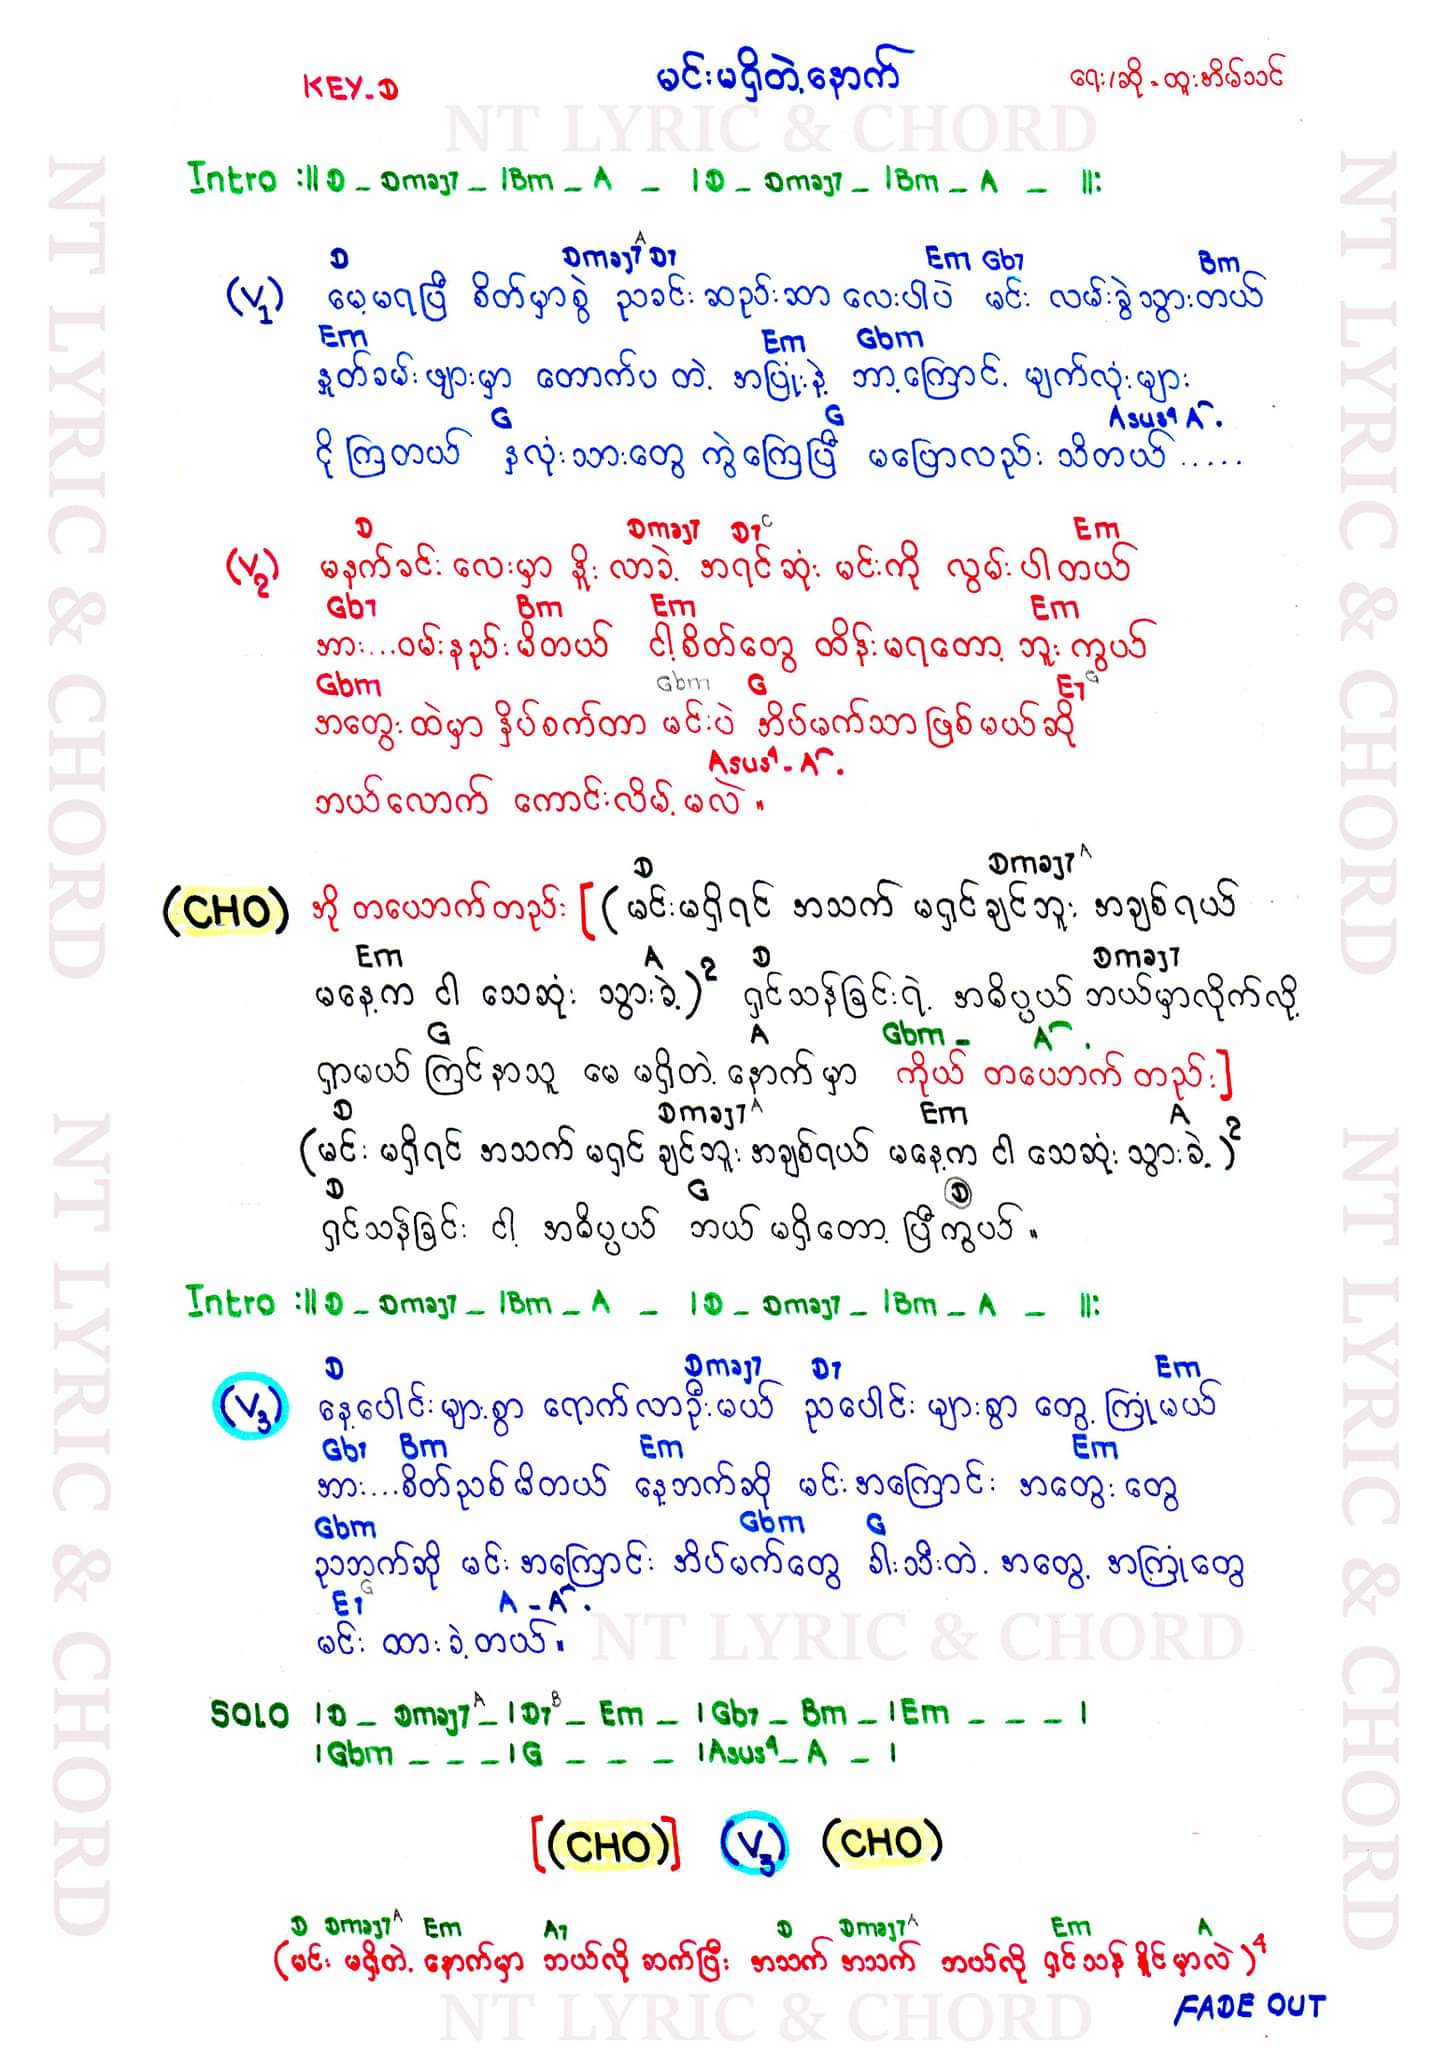 KEY-D
မင်းမရှိတဲ့နောက်
ရေး/ဆို - ထူးအိမ်သင်
NT LYRIC & CHORD
Intro :|| D _ Dmaj7 _ | Bm _ A _ | D _ Dmaj7 _ | Bm _ A _ ||:
D Dmaj7 A D7 Em Gb7 Bm
(V1) မေ့မရပြီ စိတ်မှာစွဲ ညခင်းဆည်းဆာလေးပါပဲ မင်း လမ်းခွဲသွားတယ်
Em Em Gbm
နှုတ်ခမ်းဖျားမှာ တောက်ပတဲ့ အပြုံးနဲ့ ဘာ့ကြောင့် မျက်လုံးများ
G G Asus4 A
ငိုကြတယ် နှလုံးသားတွေ ကွဲကြေပြီ မပြောလည်း သိတယ် .....
D Dmaj7 D7 C Em
(V2) မနက်ခင်းလေးမှာ နိူးလာခဲ့ အရင်ဆုံး မင်းကို လွမ်းပါတယ်
Gb7 Bm Em Em
အား...ဝမ်းနည်းမိတယ် ငါ့စိတ်တွေ ထိန်းမရတော့ဘူးကွယ်
Gbm Gbm G E7 G
အတွေးထဲမှာ နှိပ်စက်တာ မင်းပဲ အိပ်မက်သာဖြစ်မယ်ဆို
Asus4 - A
ဘယ်လောက် ကောင်းလိမ့်မလဲ။
D Dmaj7 A
(CHO) အို တယောက်တည်း [(မင်းမရှိရင် အသက် မရှင်ချင်ဘူး အချစ်ရယ်
Em A D Dmaj7
မနေ့က ငါ သေဆုံး သွားခဲ့)2 ရှင်သန်ခြင်းရဲ့ အဓိပ္ပယ် ဘယ်မှာလိုက်လို့
G A Gbm - A
ရှာမယ် ကြင်နာသူ မေ မရှိတဲ့နောက်မှာ ကိုယ် တယောက်တည်း]
D Dmaj7 A Em A
(မင်း မရှိရင် အသက် မရှင်ချင်ဘူး အချစ်ရယ် မနေ့က ငါ သေဆုံးသွားခဲ့)2
D G D
ရှင်သန်ခြင်း ငါ့ အဓိပ္ပယ် ဘယ် မရှိတော့ပြီကွယ်။
Intro :|| D _ Dmaj7 _ | Bm _ A _ | D _ Dmaj7 _ | Bm _ A _ ||:
D Dmaj7 D7 Em
(V3) နေ့ပေါင်းများစွာ ရောက်လာဦးမယ် ညပေါင်းများစွာ တွေ့ကြုံမယ်
Gb7 Bm Em Em
အား...စိတ်ညစ်မိတယ် နေ့ဘက်ဆို မင်းအကြောင်း အတွေးတွေ
Gbm Gbm G
ညဘက်ဆို မင်းအကြောင်း အိပ်မက်တွေ ခါးသီးတဲ့ အတွေ့အကြုံတွေ
E7 G A - A
မင်း ထားခဲ့တယ်။
NT LYRIC & CHORD
SOLO | D _ Dmaj7 A _ | D7 B _ Em _ | Gb7 _ Bm _ | Em _ _ _ |
| Gbm _ _ _ | G _ _ _ | Asus4 _ A _ |
[(CHO)] (V3) (CHO)
D Dmaj7 A Em A7 D Dmaj7 A Em A
(မင်း မရှိတဲ့နောက်မှာ ဘယ်လိုဆက်ပြီး အသက် အသက် ဘယ်လို ရှင်သန်နိူင်မှာလဲ)4
FADE OUT
NT LYRIC & CHORD
NT LYRIC & CHORD
NT LYRIC & CHORD
NT LYRIC & CHORD
NT LYRIC & CHORD